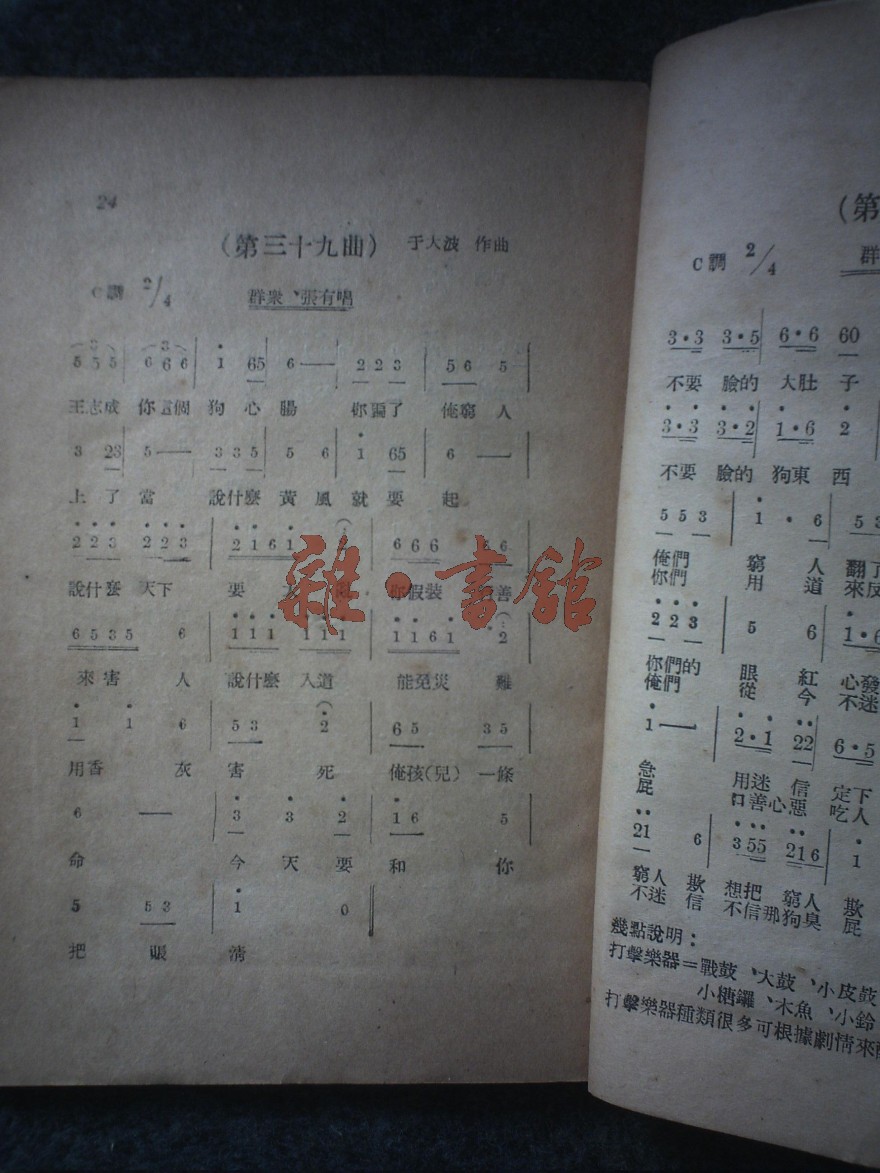 24
(第三十九曲) 于大波 作曲
C調 2/4 群衆、張有唱
5 5 5 6 6 6 1 65 6 — 2 2 3 5 6 5
王志成 你這個 狗 心 腸 你騙了 俺窮 人
3 23 5 — 3 3 5 5 6 1 65 6 —
上 了 當 說什麼 黃 風 就 要 起
2 2 3 2 2 3 2 1 6 1 6 6 6
說什麼 天下 要 你假装 善
6 5 3 5 6 1 1 1 1 1 1 1 1 6 1 2
來 害 人 說什麼 入道 能免災 難
1 1 6 5 3 2 6 5 3 5
用香 灰 害 死 俺孩(兒) 一條
6 — 3 3 2 1 6 5
命 今 天 要 和 你
5 5 3 1 0
把 賬 清
雜·書館
(第
C調 2/4 群
3·3 3·5 6·6 60
不要 臉的 大肚 子
3·3 3·2 1·6 2
不要 臉的 狗東 西
5 5 3 1 · 6 5 3
俺們 窮 人 翻了
你們 用 道 來反
2 2 3 5 6 1·6
你們的 眼 紅 心發
俺們 從 今 不迷
1 — 2·1 22 6·5
急 用迷 信 定下
屁 口善 心惡 吃人
21 6 3 55 216 1
窮人 欺 想把 窮人 欺
不迷 信 不信那狗臭 屁
幾點說明：
打擊樂器＝戰鼓、大鼓、小皮鼓
小糖鑼、木魚、小鈴
打擊樂器種類很多可根據劇情來